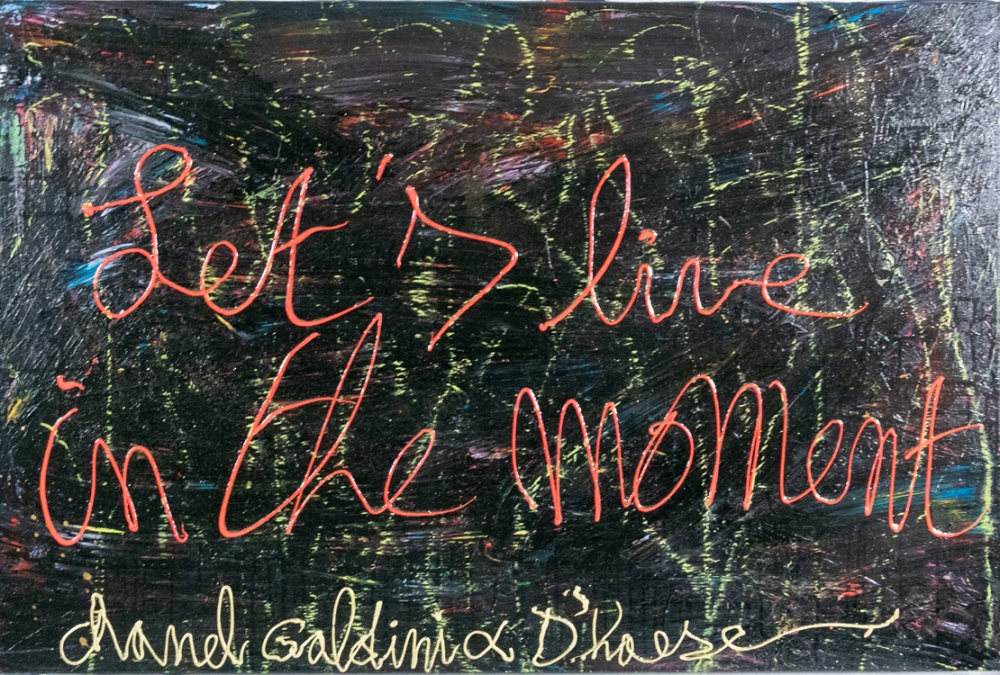 Let's live
in the moment
chanel Galdini & D'haese